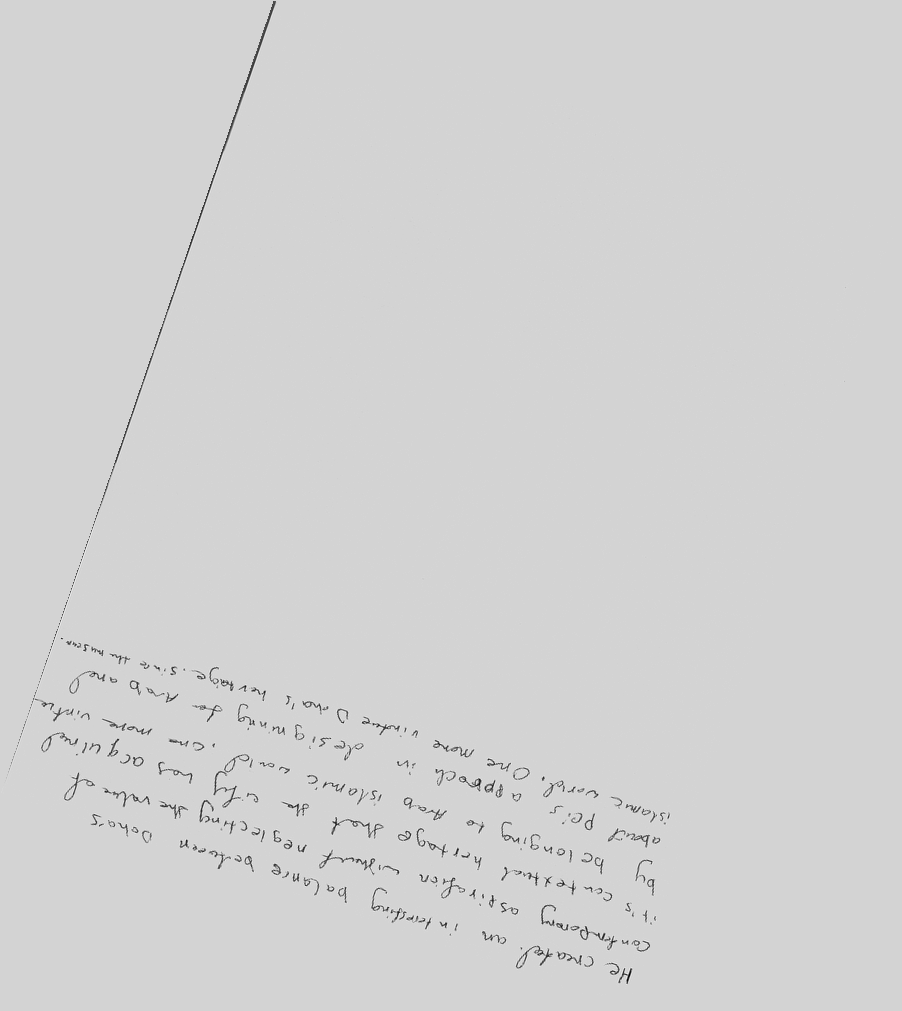 He created an interesting balance between Doha's
contemporary aspiration without neglecting the value of
it's contextual hertage that the city has acquired
by belonging to Arab islamic world, one more virtue
about PEi's approach in designing for Arab and
islamic world. One more vintue Doha's hertaige. since the museum.